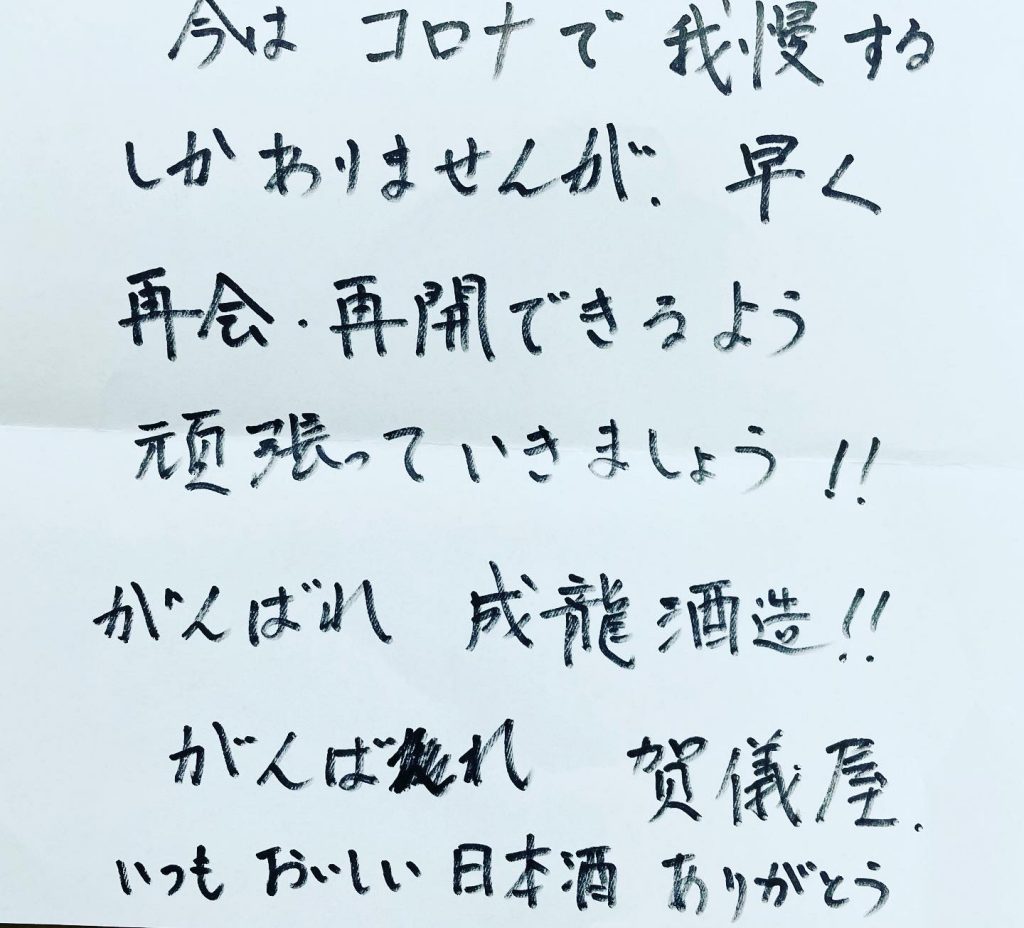 今は コロナで 我慢する
しかありませんが、早く
再会・再開できるよう
頑張っていきましょう!!
がんばれ 成龍酒造!!
がんばれ 賀儀屋.
いつも おいしい 日本酒 ありがとう